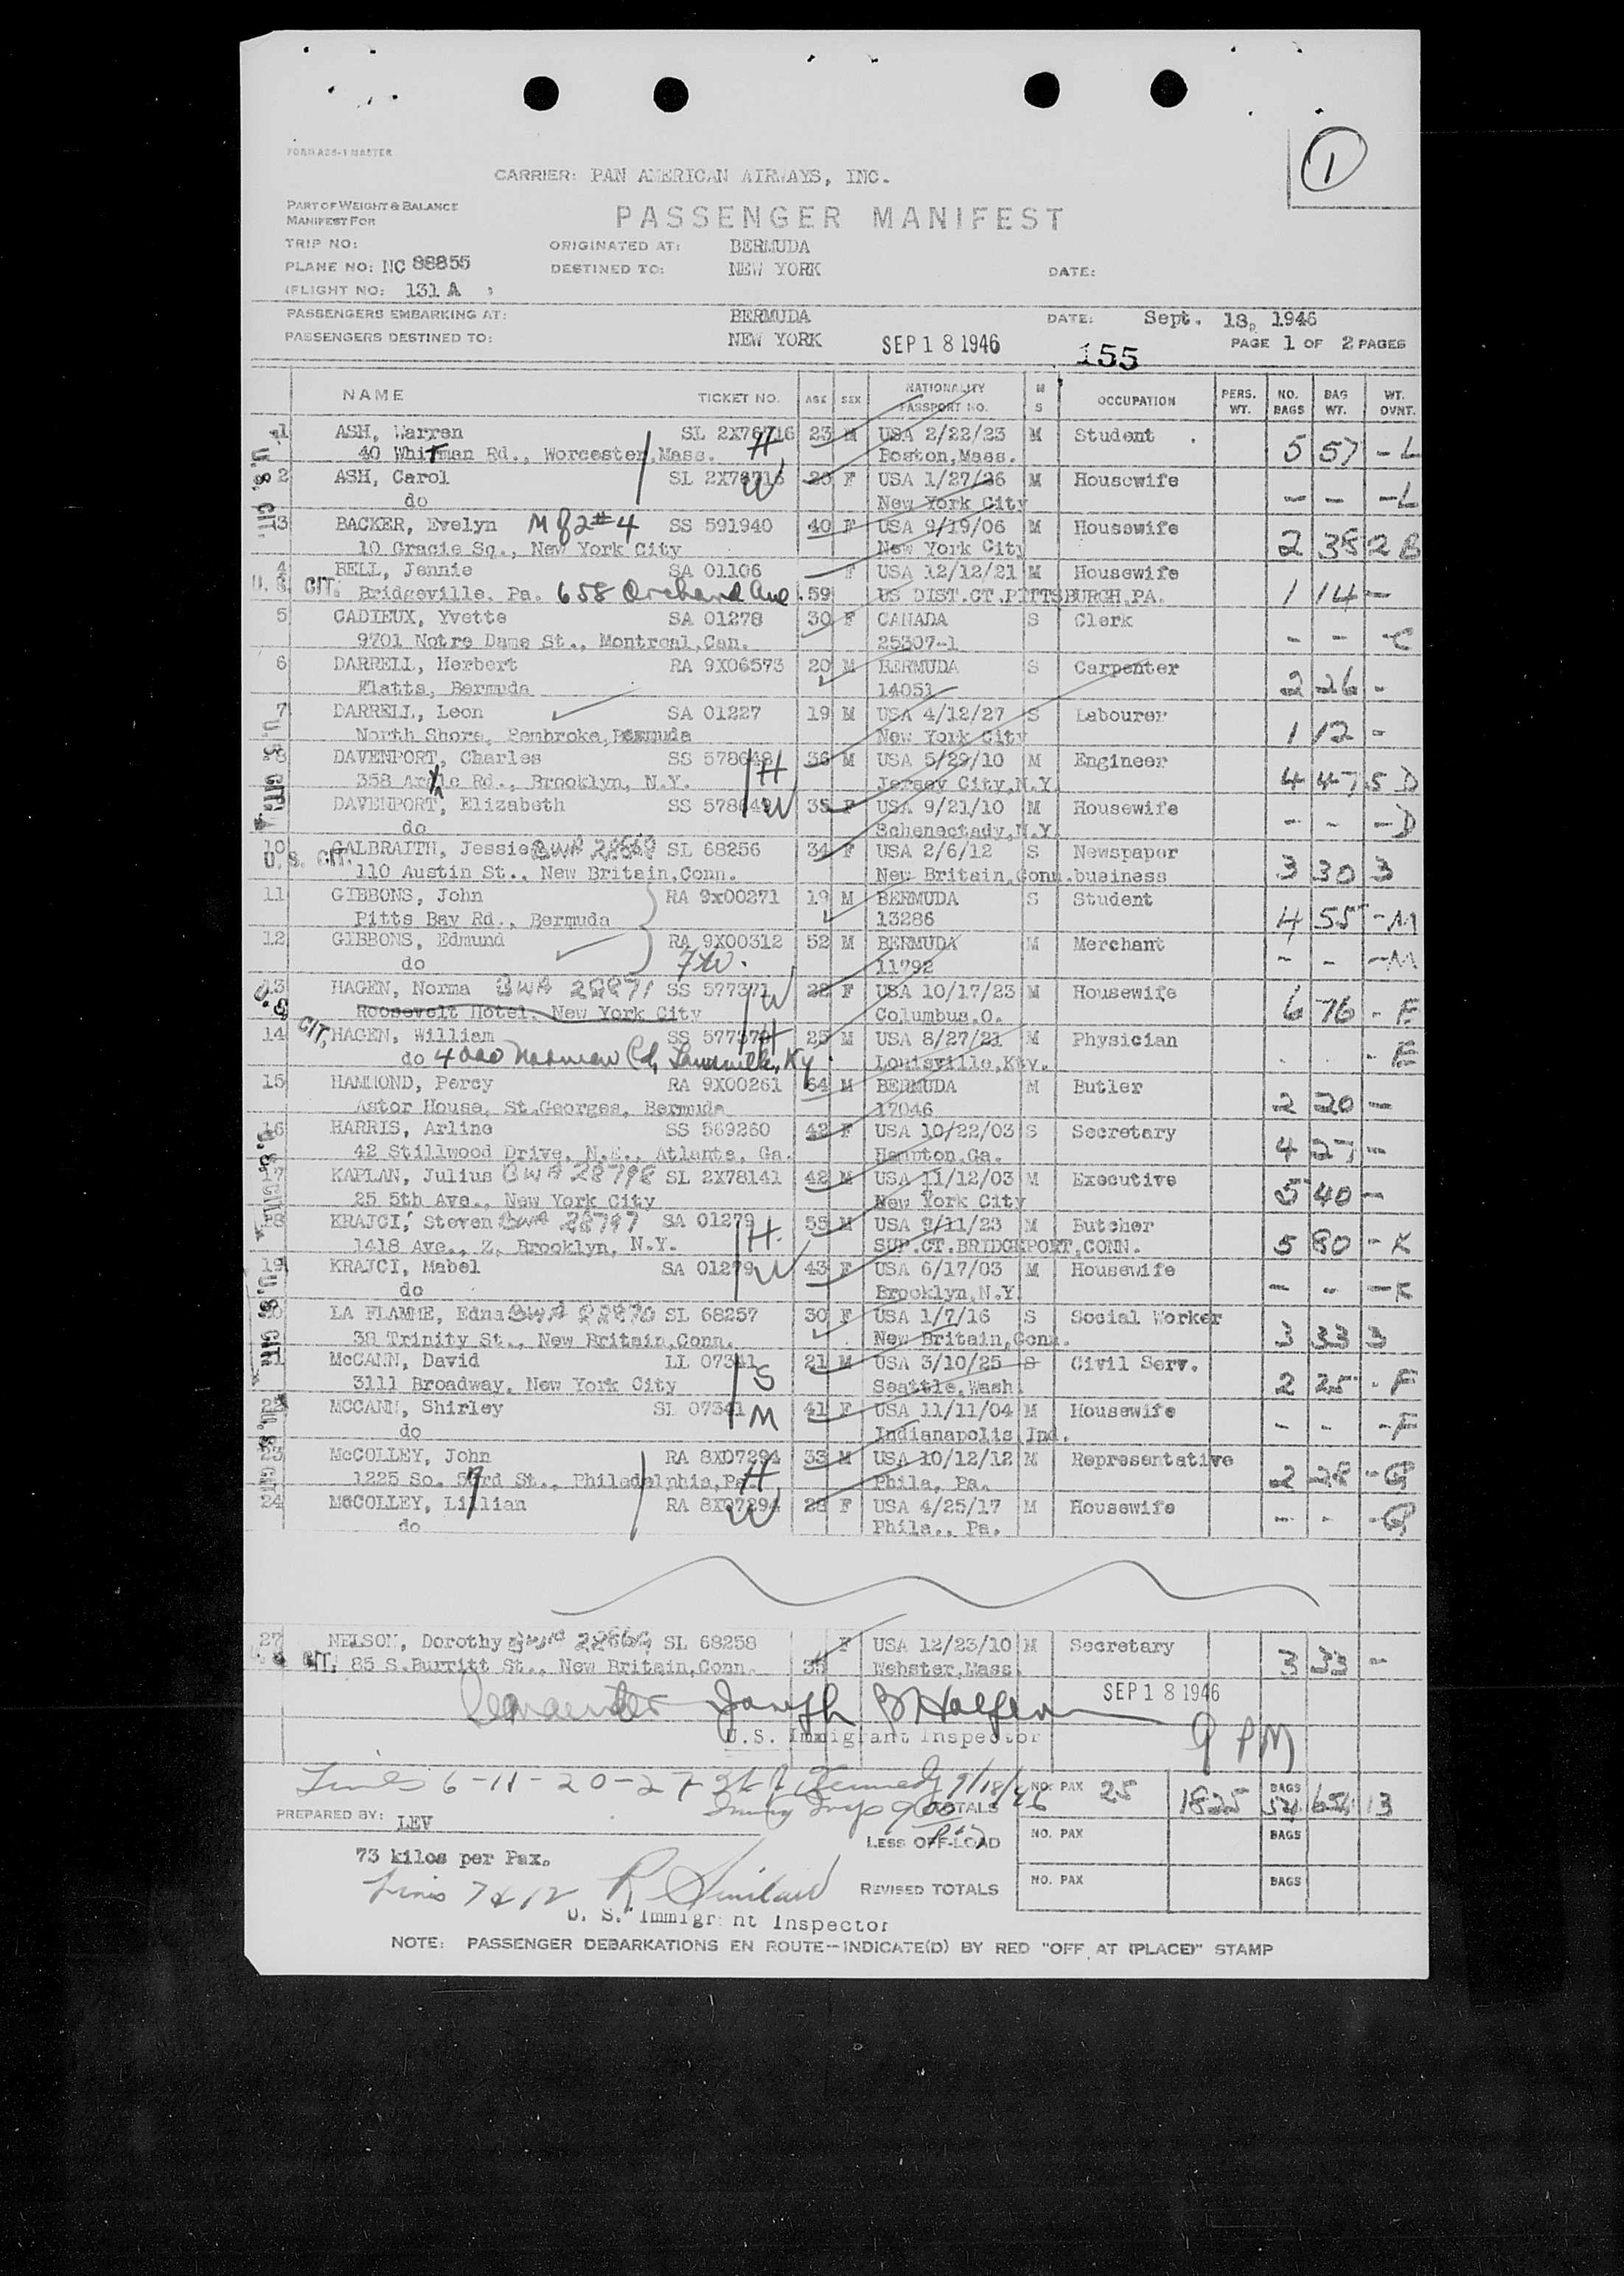 FORM A26-1 MASTER
1
CARRIER: PAN AMERICAN AIRWAYS, INC.
PART OF WEIGHT & BALANCE
MANIFEST FOR
PASSENGER MANIFEST
TRIP NO: ORIGINATED AT: BERMUDA
PLANE NO: NC 88855 DESTINED TO: NEW YORK DATE:
FLIGHT NO: 131 A
PASSENGERS EMBARKING AT: BERMUDA DATE: Sept. 18, 1946
PASSENGERS DESTINED TO: NEW YORK SEP 18 1946 155 PAGE 1 OF 2 PAGES
NAME TICKET NO. AGE SEX NATIONALITY PASSPORT NO. M S OCCUPATION PERS. WT. NO. BAGS BAG WT. WT. OVNT.
1 ASH, Warren SL 2X76716 H 23 M USA 2/22/23 M Student 5 57 - L
40 Whitman Rd., Worcester, Mass. Boston, Mass.
U.S. CIT.
2 ASH, Carol SL 2X76716 W 20 F USA 1/27/26 M Housewife - - - L
do New York City
3 BACKER, Evelyn SS 591940 40 F USA 9/19/06 M Housewife 2 38 2 B
10 Gracie Sq., New York City New York City
4 BELL, Jennie SA 01106 F USA 12/12/21 M Housewife 1 14 -
U.S. CIT. Bridgeville, Pa. 658 Orchard Ave. 59 US DIST.CT.PITTSBURGH.PA.
5 CADIEUX, Yvette SA 01278 30 F CANADA S Clerk - - - C
9701 Notre Dame St., Montreal, Can. 25307-1
6 DARRELL, Herbert RA 9X06573 20 M BERMUDA S Carpenter 2 26 -
Flatts, Bermuda 14051
7 DARRELL, Leon SA 01227 19 M USA 4/12/27 S Labourer 1 12 -
North Shore, Pembroke, Bermuda New York City
U.S. CIT.
8 DAVENPORT, Charles SS 578648 H 36 M USA 5/29/10 M Engineer 4 47 5 D
358 Argyle Rd., Brooklyn, N.Y. Jersey City, N.Y.
DAVENPORT, Elizabeth SS 578649 W 35 F USA 9/21/10 M Housewife - - - D
do Schenectady, N.Y.
10 GALBRAITH, Jessie SL 68256 34 F USA 2/6/12 S Newspaper 3 30 3
U.S. CIT. 110 Austin St., New Britain, Conn. New Britain, Conn. business
11 GIBBONS, John RA 9x00271 19 M BERMUDA S Student 4 55 - M
Pitts Bay Rd., Bermuda 13286
12 GIBBONS, Edmund RA 9X00312 52 M BERMUDA M Merchant - - - M
do 11792
13 HAGEN, Norma BWA 28871 SS 577371 W 22 F USA 10/17/23 M Housewife 6 76 - F
U.S. CIT. Roosevelt Hotel, New York City Columbus, O.
14 HAGEN, William SS 577370 H 25 M USA 8/27/21 M Physician - - - F
do Louisville, Ky. Louisville, Kty.
15 HAMMOND, Percy RA 9X00261 64 M BERMUDA M Butler 2 20 -
Astor House, St. Georges, Bermuda 17046
16 HARRIS, Arline SS 569260 42 F USA 10/22/03 S Secretary 4 27 -
42 Stillwood Drive, N.E., Atlanta, Ga. Hampton, Ga.
17 KAPLAN, Julius BWA 28798 SL 2X78141 42 M USA 11/12/03 M Executive 5 40 -
25 5th Ave., New York City New York City
18 KRAJCI, Steven BWA 28797 SA 01279 H. 55 M USA 2/11/23 M Butcher 5 80 - K
1418 Ave., Z, Brooklyn, N.Y. SUP.CT.BRIDGEPORT,CONN.
19 KRAJCI, Mabel SA 01279 W 43 F USA 6/17/03 M Housewife - - - K
do Brooklyn, N.Y.
U.S. CIT.
20 LA FLAMME, Edna BWA 28870 SL 68257 30 F USA 1/7/16 S Social Worker 3 33 3
38 Trinity St., New Britain, Conn. New Britain, Conn.
21 McCANN, David LL 07341 S 21 M USA 3/10/25 S Civil Serv. 2 25 - F
3111 Broadway, New York City Seattle, Wash.
22 MCCANN, Shirley SL 07341 M 41 F USA 11/11/04 M Housewife - - - F
do Indianapolis, Ind.
23 McCOLLEY, John RA 8X07294 H 33 M USA 10/12/12 M Representative 2 28 - G
1225 So. 57rd St., Philadelphia, Pa. Phila, Pa.
24 McCOLLEY, Lillian RA 8X07294 W 28 F USA 4/25/17 M Housewife - - - G
do Phila., Pa.
27 NELSON, Dorothy SL 68258 F USA 12/23/10 M Secretary 3 33 -
CIT. 85 S. Burritt St., New Britain, Conn. 35 Webster, Mass.
Joseph B Halfern SEP 18 1946
U.S. Immigrant Inspector 9 PM
Lines 6-11-20-27 Kennedy 9/18/46 NO. PAX 25 1825 BAGS 54 654 13
TOTALS
PREPARED BY: LEV
LESS OFF-LOAD NO. PAX BAGS
73 kilos per Pax.
Lines 7 & 12 REVISED TOTALS NO. PAX BAGS
U. S. Immigrant Inspector
NOTE: PASSENGER DEBARKATIONS EN ROUTE--INDICATE(D) BY RED "OFF AT (PLACE)" STAMP